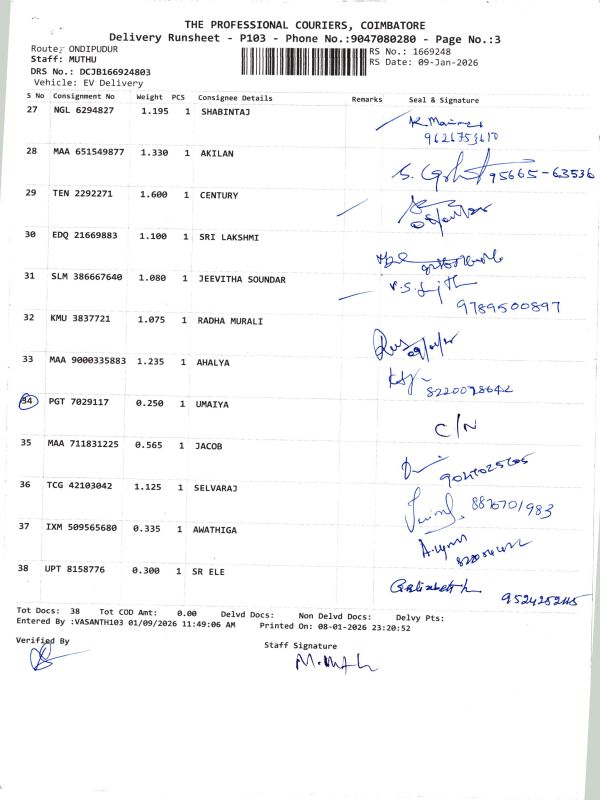 THE PROFESSIONAL COURIERS, COIMBATORE
Delivery Runsheet - P103 - Phone No.:9047080280 - Page No.:3
Route: ONDIPUDUR
RS No.: 1669248
Staff: MUTHU
RS Date: 09-Jan-2026
DRS No.: DCJB166924803
Vehicle: EV Delivery
S No Consignment No Weight PCS Consignee Details Remarks Seal & Signature
27 NGL 6294827 1.195 1 SHABINTAJ
28 MAA 651549877 1.330 1 AKILAN
95665-63536
29 TEN 2292271 1.600 1 CENTURY
30 EDQ 21669883 1.100 1 SRI LAKSHMI
31 SLM 386667640 1.080 1 JEEVITHA SOUNDAR
9789500897
32 KMU 3837721 1.075 1 RADHA MURALI
33 MAA 9000335883 1.235 1 AHALYA
34 PGT 7029117 0.250 1 UMAIYA
C/N
35 MAA 711831225 0.565 1 JACOB
36 TCG 42103042 1.125 1 SELVARAJ
8876701983
37 IXM 509565680 0.335 1 AWATHIGA
38 UPT 8158776 0.300 1 SR ELE
Tot Docs: 38 Tot COD Amt: 0.00 Delvd Docs: Non Delvd Docs: Delvy Pts:
Entered By :VASANTH103 01/09/2026 11:49:06 AM Printed On: 08-01-2026 23:20:52
Verified By
Staff Signature